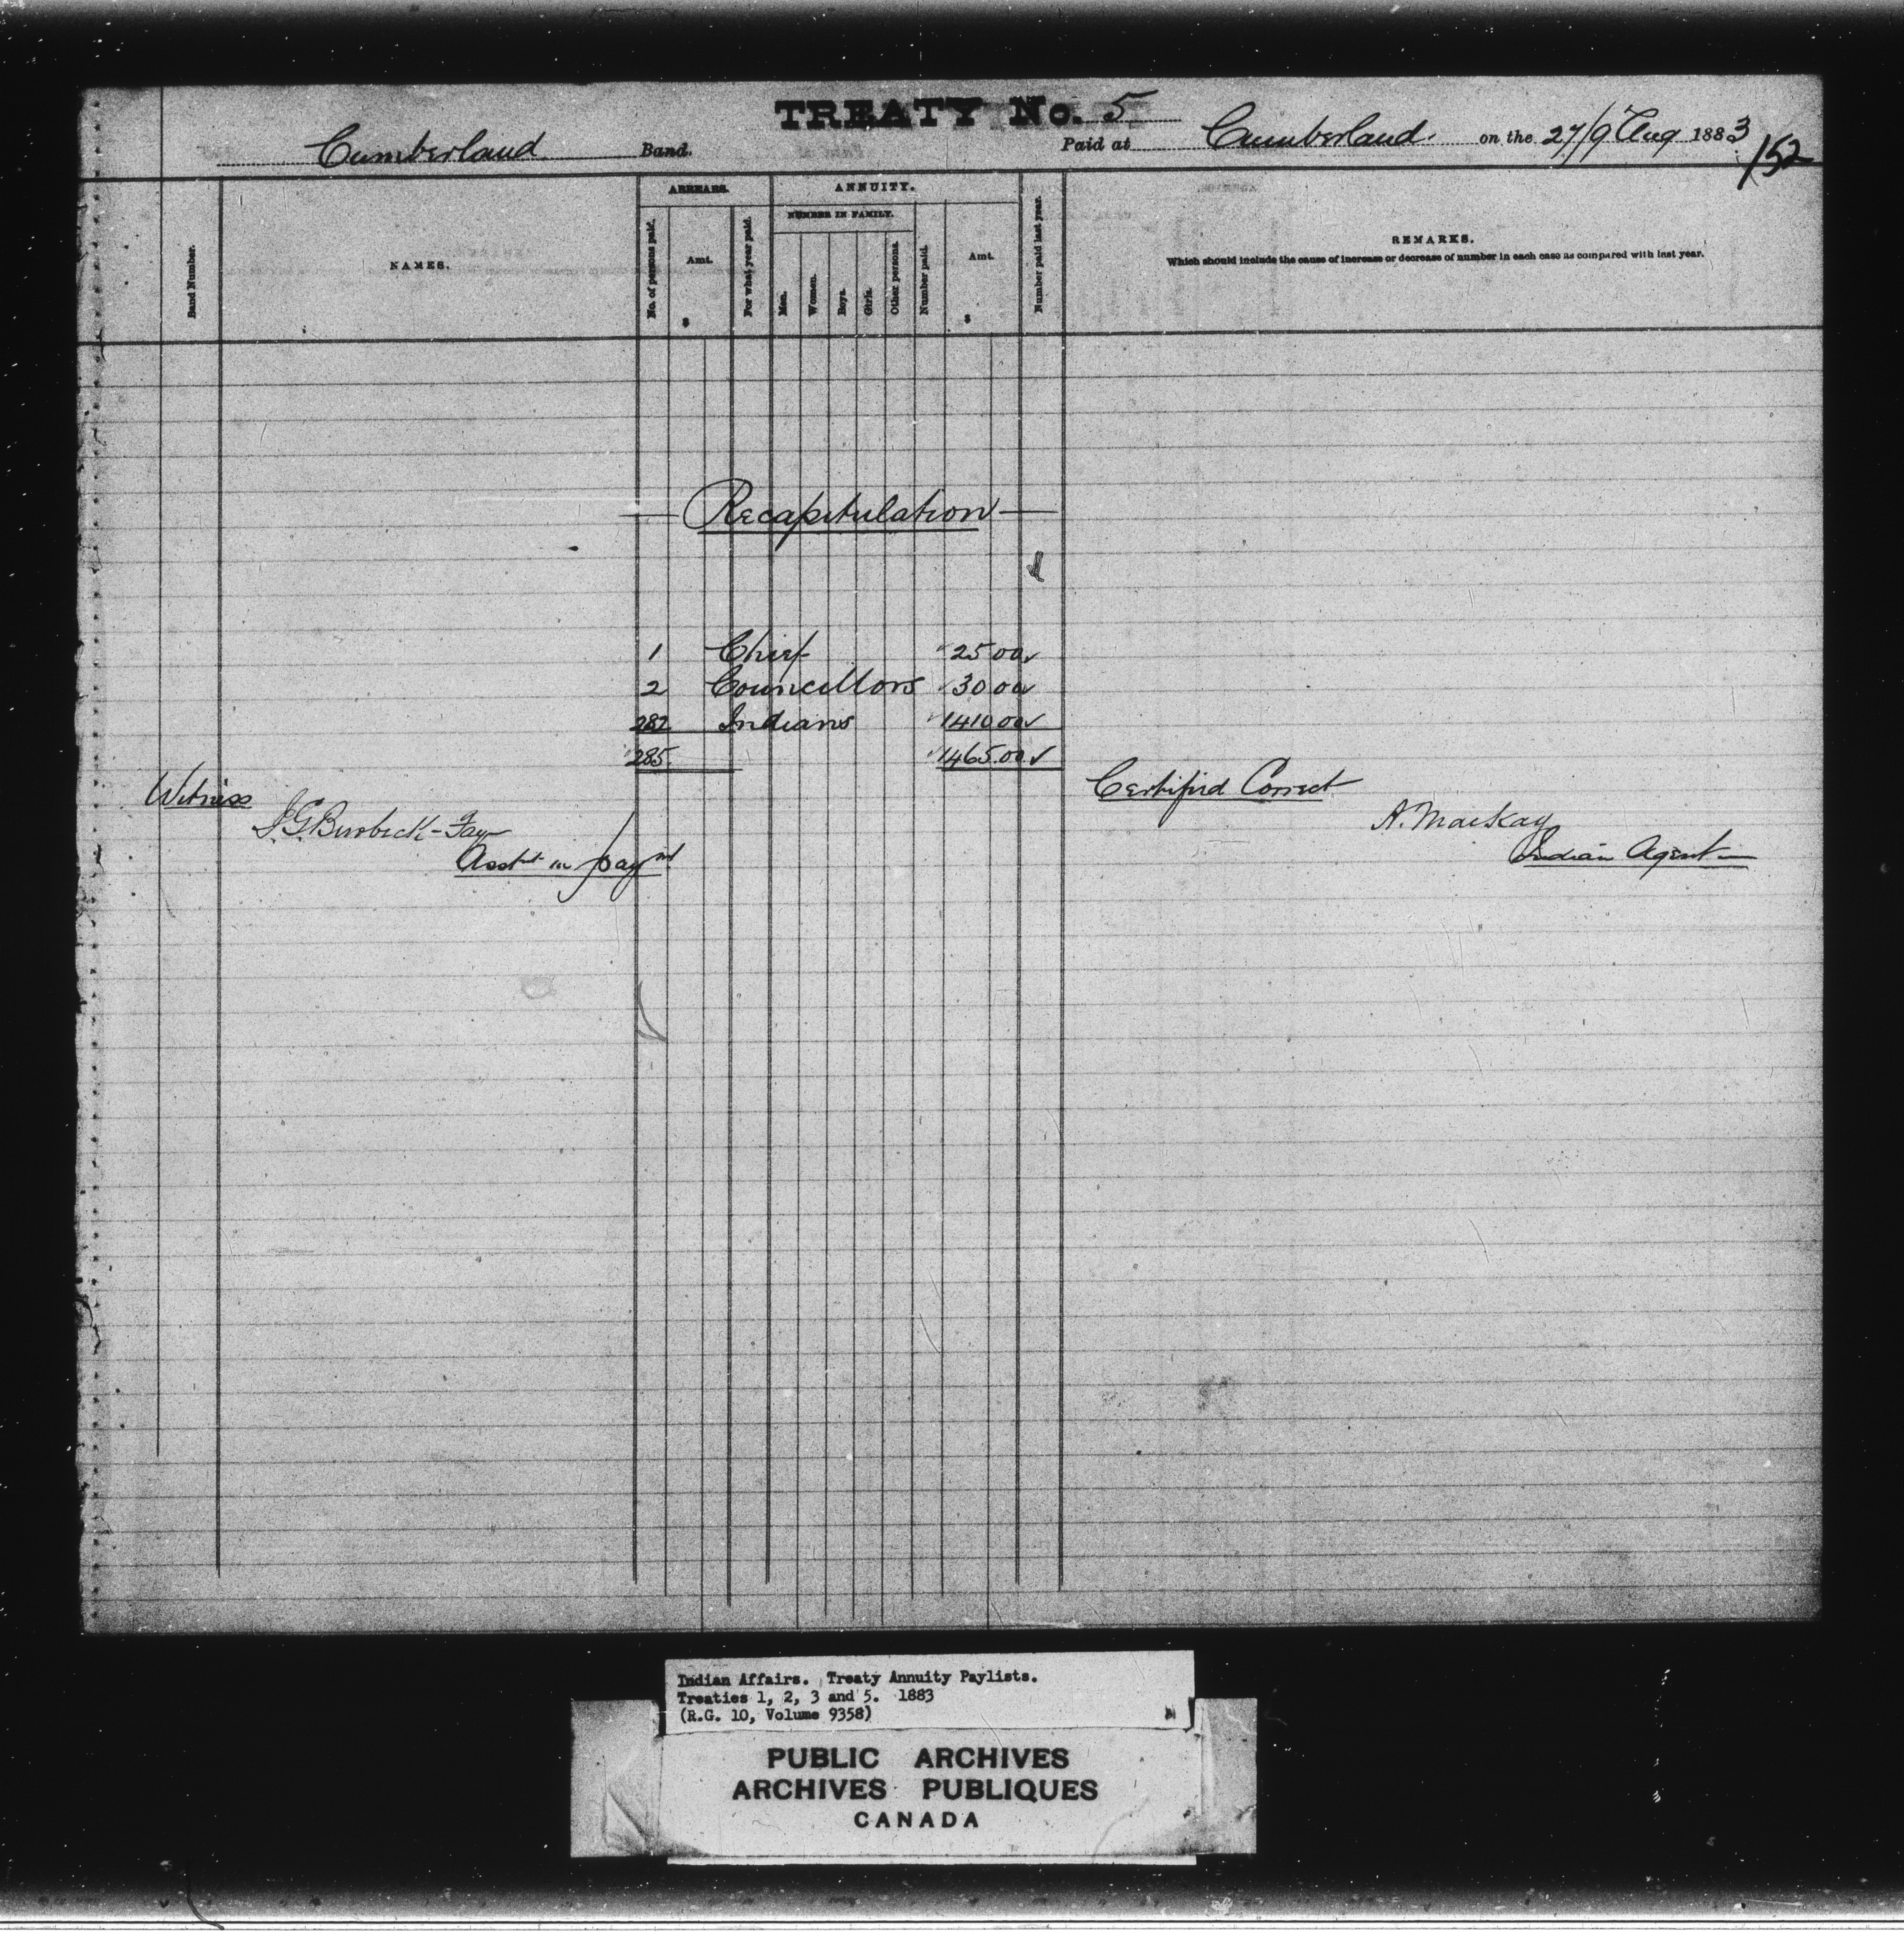 TREATY No. 5
Cumberland Band. Paid at Cumberland on the 27/9 Aug 1883
152
Band Number.
NAMES.
ARREARS.
No. of persons paid.
Amt.
$
For what year paid.
ANNUITY.
NUMBER IN FAMILY.
Men.
Women.
Boys.
Girls.
Other persons.
Number paid.
Amt.
$
Number paid last year.
REMARKS.
Which should include the cause of increase or decrease of number in each case as compared with last year.
Recapitulation
1 Chief 25 00
2 Councillors 30 00
282 Indians 1410 00
285 1465.00
Witness
Certified Correct
A. Mackay
Indian Agent
Asst in paymt
Indian Affairs. Treaty Annuity Paylists.
Treaties 1, 2, 3 and 5. 1883
(R.G. 10, Volume 9358)
PUBLIC ARCHIVES
ARCHIVES PUBLIQUES
CANADA